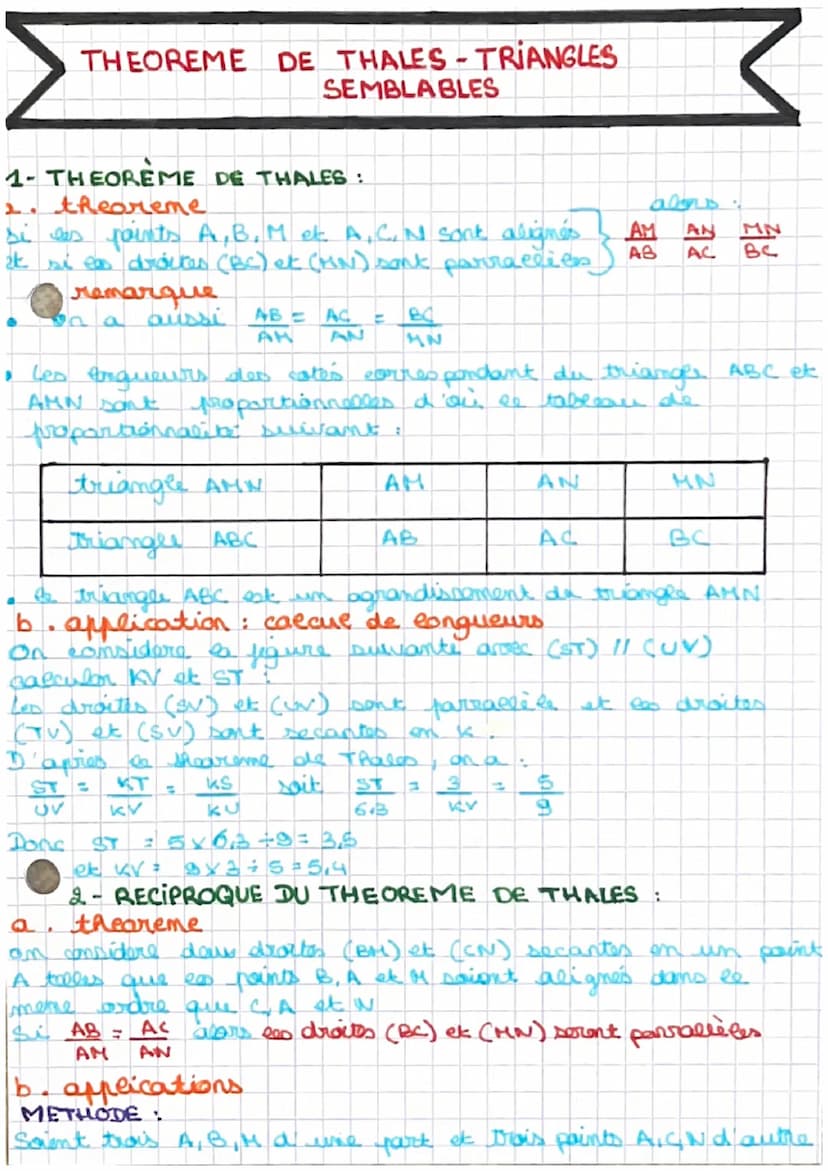 THEOREME DE THALES - TRIANGLES
SEMBLABLES
1- THEORÈME DE THALES :
2. theoreme
alors :
si les points A, B, M et A, C, N sont alignés
et si les droites (BC) et (MN) sont parraelles
AM AN MN
AB AC BC
remarque
• On a aussi AB = AC = BC
AM AN MN
• Les longueurs des cotés correspondant du triangle ABC et
AMN sont proportionnelles d'où le tableau de
proportionnalité suivant :
triangle AMN AM AN MN
triangle ABC AB AC BC
• le triangle ABC est un agrandissement du triangle AMN
b. application : calcul de longueurs
On considere la figure suivante avec (ST) // (UV)
calculon KV et ST :
Les droites (SV) et (UV) sont parraelle et les droites
(TV) et (SU) sont secantes en K.
D'apres le theoreme de Thales, on a :
ST = KT = KS soit ST = 3 = 5
UV KV KU 6,3 KV 9
Donc ST = 5 x 6,3 ÷ 9 = 3,5
et KV = 9 x 3 ÷ 5 = 5,4
2- RECIPROQUE DU THEOREME DE THALES :
a. theoreme
on considere deux droites (BM) et (CN) secantes en un point
A telles que les points B, A et M soient alignés dans le
meme ordre que C, A et N
Si AB = AC alors les droites (BC) et (MN) seront parrallèles
AM AN
b. applications
METHODE :
Soient trois A, B, M d'une part et trois points A, C, N d'autre